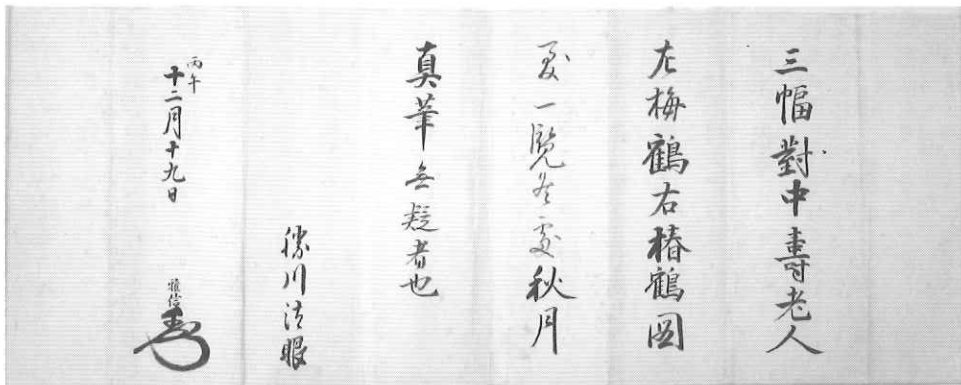 三幅對中壽老人
左梅鶴右椿鶴図
一覧 處秋月
真筆無疑者也
勝川法眼
丙午
十二月十九日
雅信